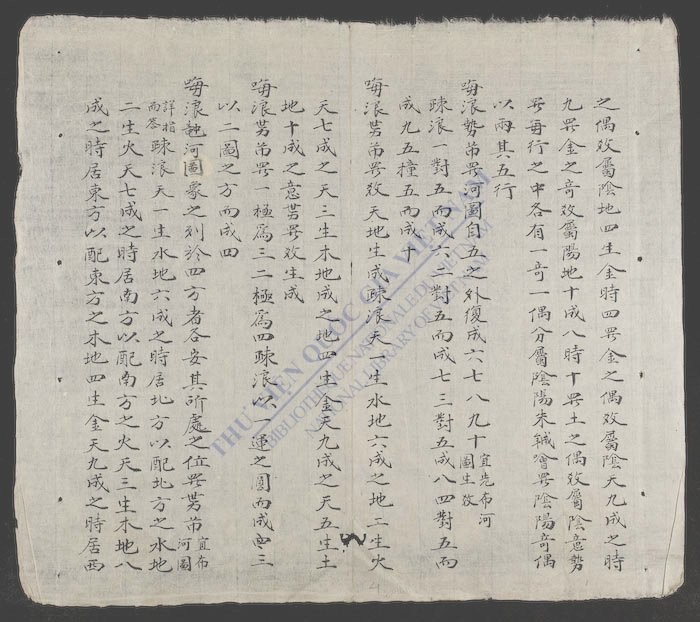 之偶数屬陰地四生金時四罗金之偶数屬陰天九成之時
九罗金之奇数屬陽地十成八時十罗土之偶数屬陰意勢
罗每行之中各有一奇一偶分屬陰陽朱罗陰陽奇偶
以兩其五行
嗨浪勢芾罗河圖自五之外復成六七八九十宜先布河圖生数
疎浪一對五而成六二對五而成七三對五成八四對五而
成九五撞五而成十
嗨浪芾罗数天地生成疎浪天一生水地六成之地二生火
天七成之天三生木地成之地四生金天九成之天五生土
地十成之意罗数生成
嗨浪芾罗一極爲三二極爲四疎浪以一運之圓而成三
以二圖之方而成四
嗨浪河圖象之列於四方者各安其所處之位罗芾宜布河圖
詳指而答疎浪天一生水地六成之時居北方以配北方之水地
二生火天七成之時居南方以配南方之火天三生木地八
成之時居東方以配東方之木地四生金天九成之時居西
THƯ VIỆN QUỐC GIA VIỆT NAM
BIBLIOTHÈQUE NATIONALE DU VIETNAM
NATIONAL LIBRARY OF VIETNAM